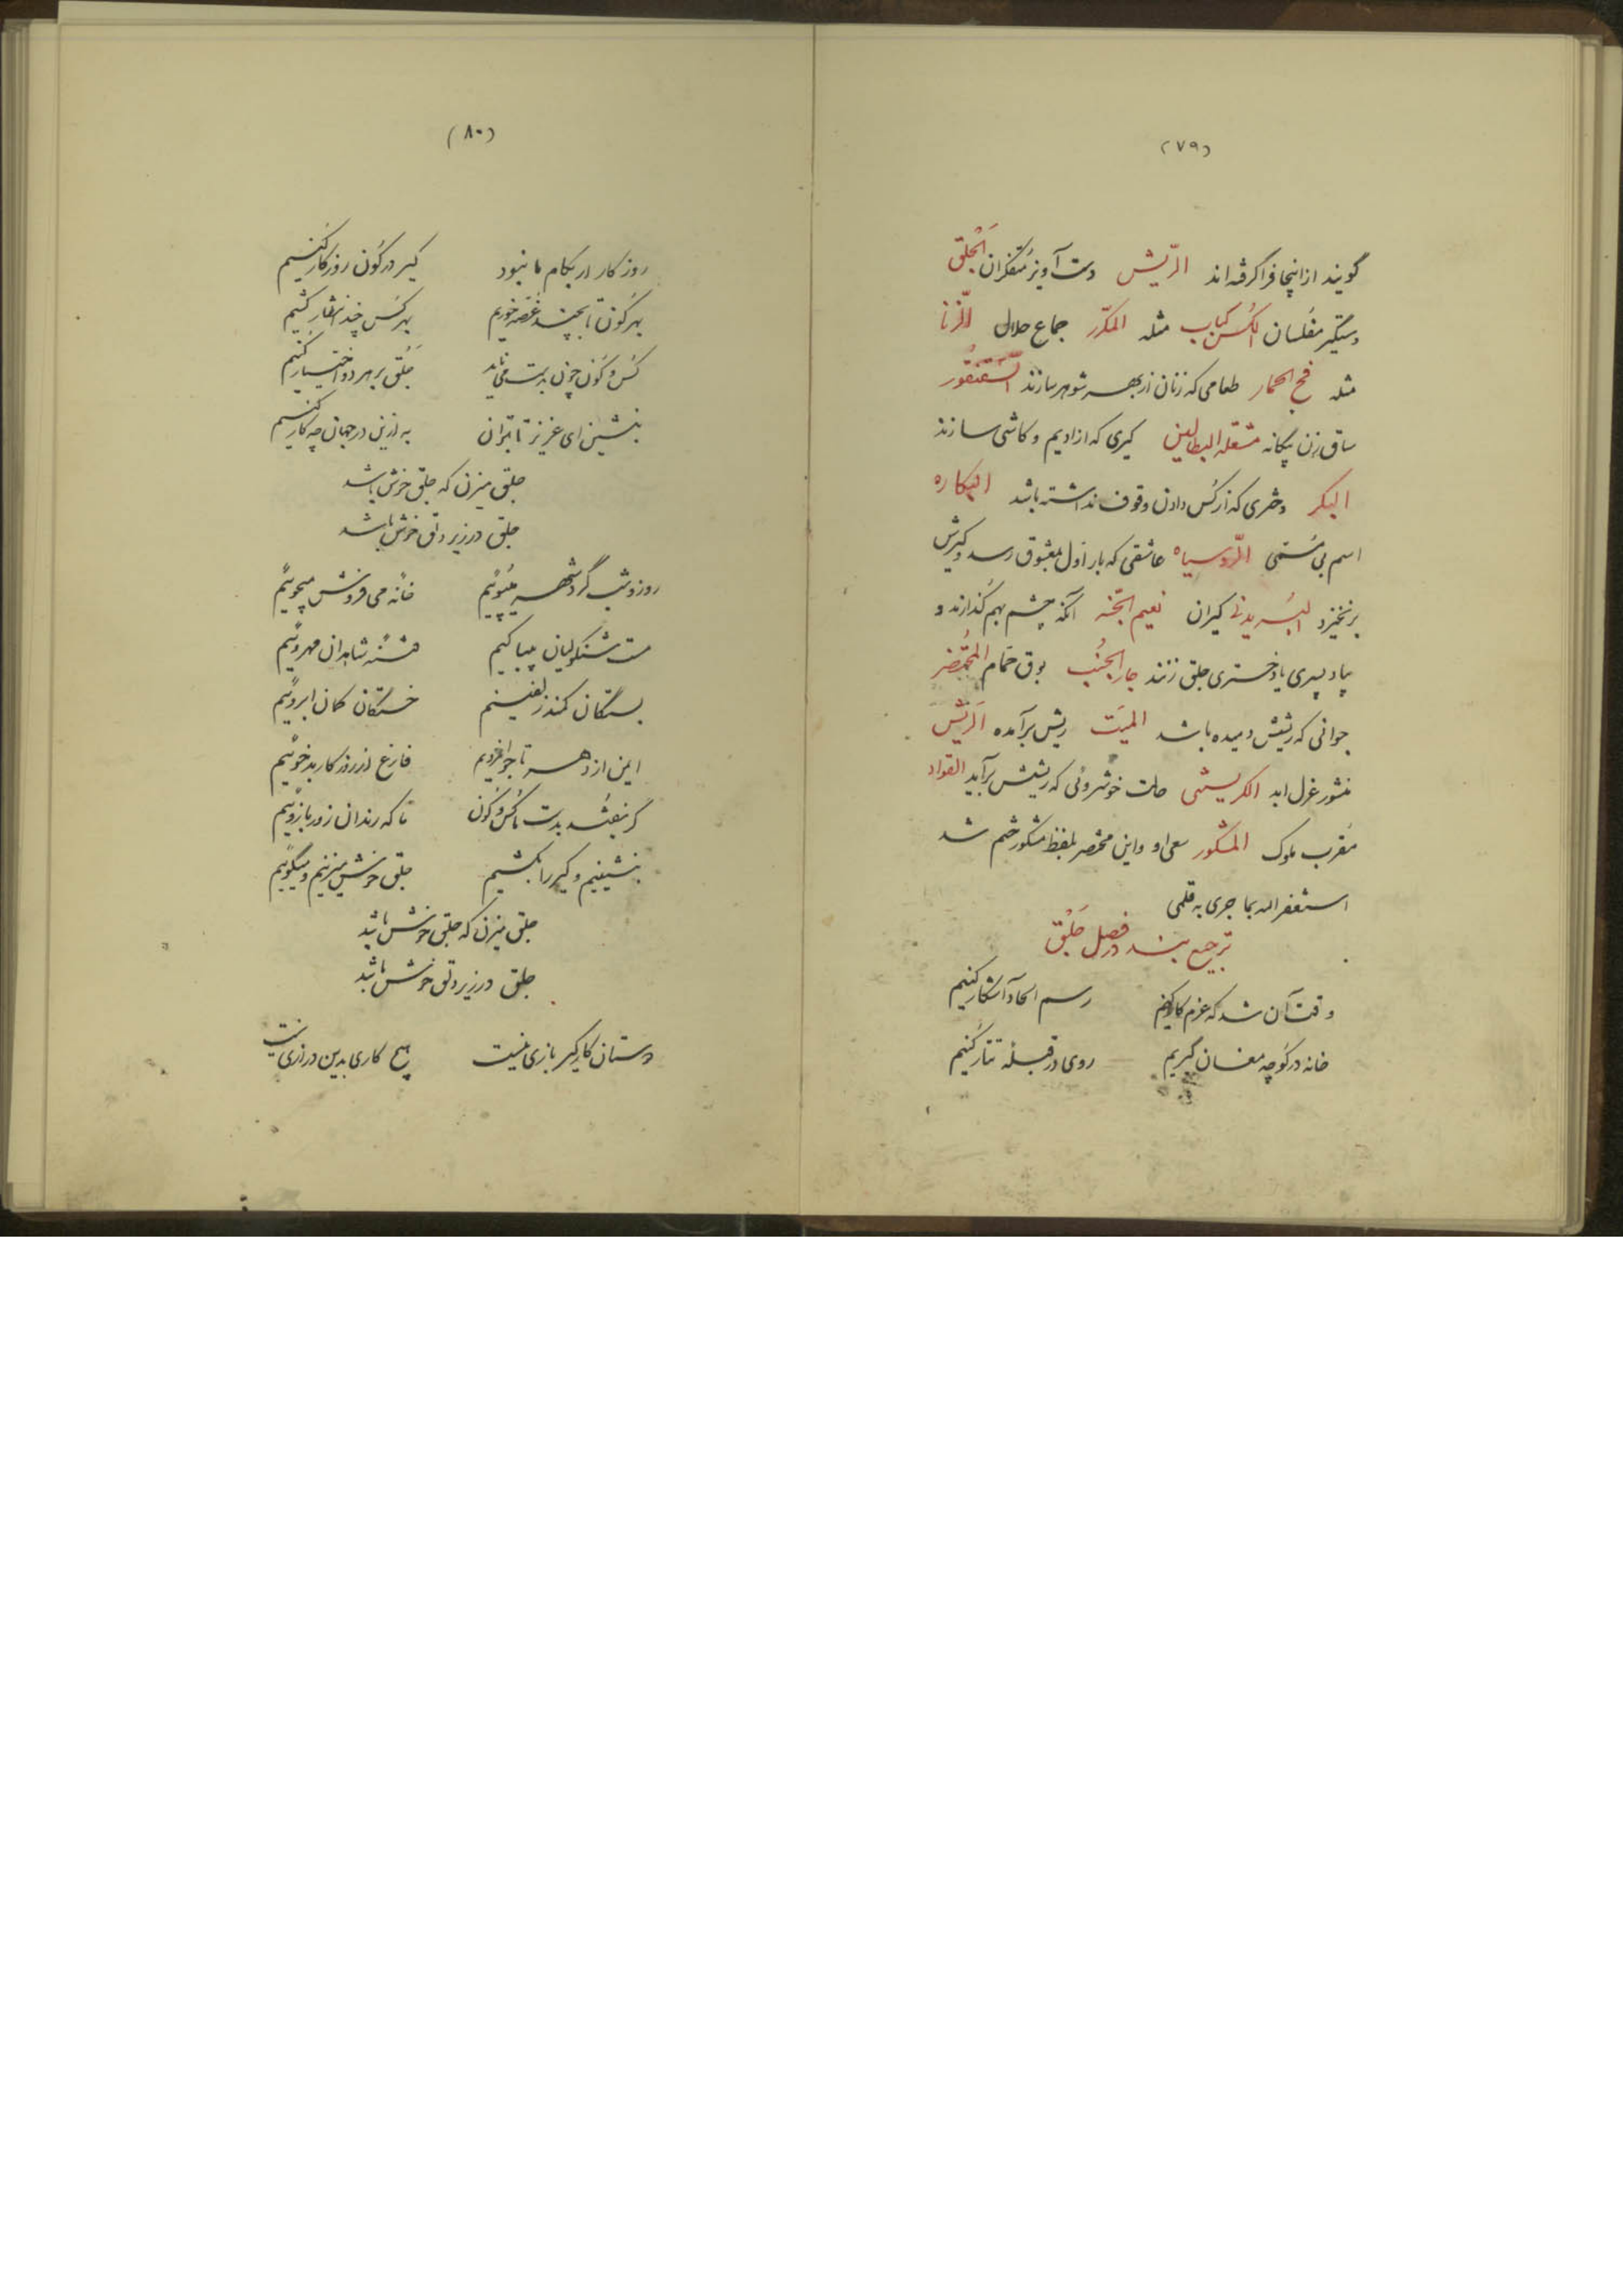 (۷۹)
گویند از اینجا فرا گرفته‌اند الرّیش دست آویز متفکران اَلجَلق
دستگیر مفلسان الکُس کباب مثله المکرّر جماع حلال الزّنا
مثله فخ الحمار طعامی که زنان از بهر شوهر سازند السَّقَنقُور
ساق زن بیگانه مشغلة البطالین کیری که از ادیم و کاشی سازند
البکر دختری که از کُس دادن وقوف نداشته باشد البکاره
اسم بی مُسمّی الرّوسیاه عاشقی که بار اول بمعشوق رسد و کیرش
برنخیزد کیران نعیم الجنّه آنکه چشم بهم گذارند و
بیاد پسری یا دختری جلق زنند جار الجُنُب بوق حمام المُحتَضَر
جوانی که ریشش دمیده باشد المیّت ریش برآمده اَلریش
منشور عزل ابد الکریستنی حالت خوشروئی که ریشش برآید القواد
مقرب ملوک المشکور سعی او و این مختصر بلفظ مشکور ختم شد
استغفر الله بما جری به قلمی
ترجیع بند در فصل جَلْق
وقت آن شد که عزم کار کنیم رسم الحاد آشکار کنیم
خانه در کوچه مغان گیریم روی در قبلهٔ تتار کنیم
(۸۰)
روزگار ار بکام ما نبود کیر در کُون روزگار کنیم
بهر کُون تا بچند غصّه خوریم بهر کُس چند انتظار کشیم
کُس و کُون چون بدست می‌ناید جلق بر هر دو اختیار کنیم
بنشین ای عزیز تا بتوان به ازین در جهان چه کار کنیم
جلق میزن که جلق خوش باشد
جلق در زیر دلق خوش باشد
روز و شب گرد شهر میپوئیم خانهٔ می فروش میجوئیم
مست شنگولیان بیباکیم فتنهٔ شاهدان مهروئیم
بستگان کمند زلفینیم خستگان کمان ابروئیم
ایمن از دهر ناجوانمردیم فارغ از روزگار بدخوئیم
گر نیفتد بدست ما کُس و کُون ما که رندان زور بازوئیم
بنشینیم و کیر را بکشیم جلق خوش میزنیم و میگوئیم
جلق میزن که جلق خوش باشد
جلق در زیر دلق خوش باشد
دوستان کار کیر بازی نیست هیچ کاری بدین درازی نیست